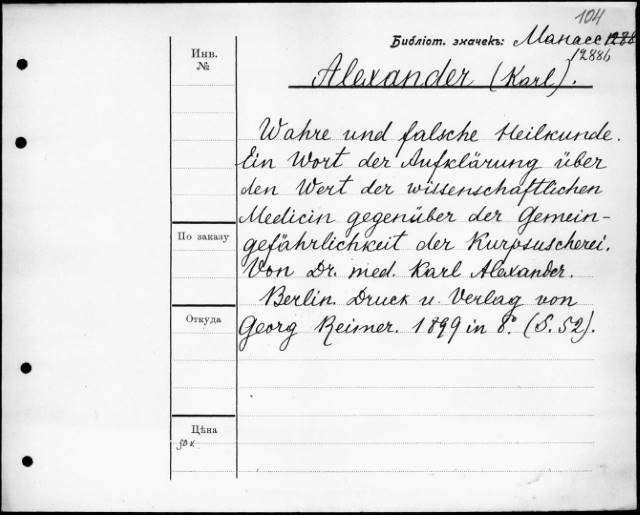 104
Библіот. значекъ: Манасс 1288
1288b
Инв.
№
Alexander (Karl).
Wahre und falsche Heilkunde.
Ein Wort der Aufklärung über
den Wert der wissenschaftlichen
Medicin gegenüber der Gemein-
gefährlichkeit der Kurpsuscherei.
Von Dr. med. Karl Alexander.
Berlin. Druck u. Verlag von
Georg Reimer. 1899 in 8°. (S. 52).
По заказу
Откуда
Цѣна
50 к